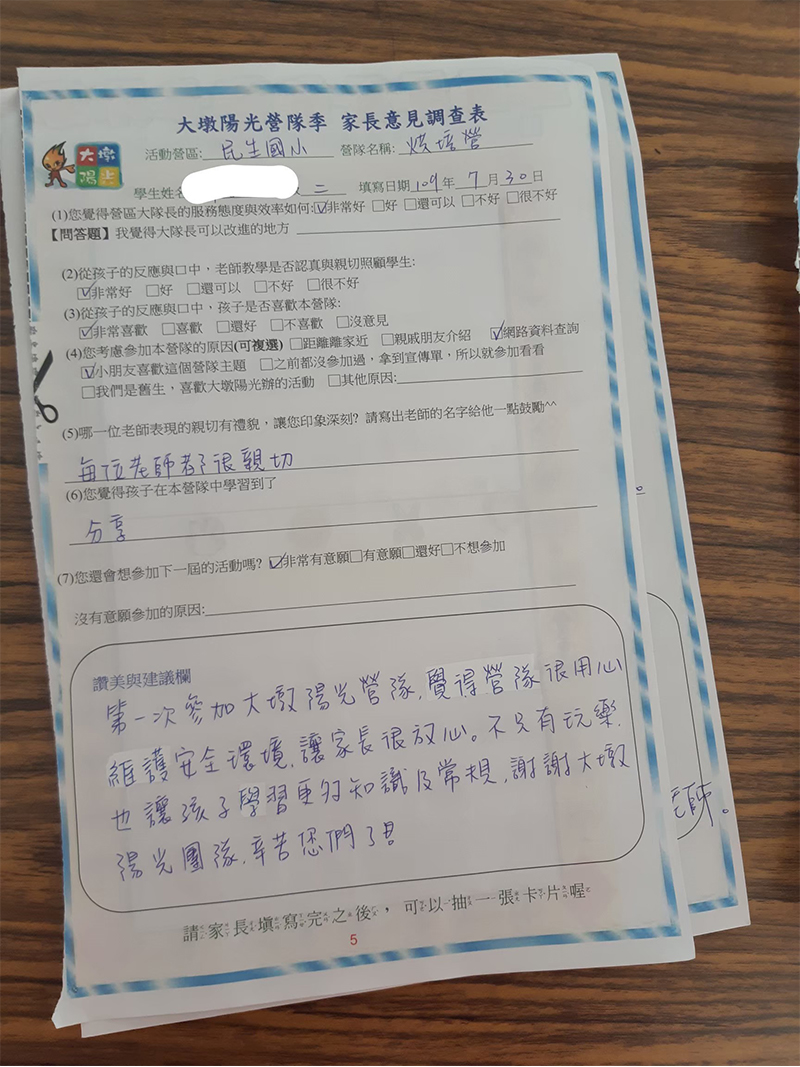 大墩陽光營隊季 家長意見調查表
大墩
陽光
活動營區: 民生國小 營隊名稱: 烘培營
學生姓名 二 填寫日期 109 年 7 月 30 日
(1)您覺得營區大隊長的服務態度與效率如何:☑非常好 □好 □還可以 □不好 □很不好
【問答題】我覺得大隊長可以改進的地方
(2)從孩子的反應與口中，老師教學是否認真與親切照顧學生:
☑非常好 □好 □還可以 □不好 □很不好
(3)從孩子的反應與口中，孩子是否喜歡本營隊:
☑非常喜歡 □喜歡 □還好 □不喜歡 □沒意見
(4)您考慮參加本營隊的原因(可複選) □距離離家近 □親戚朋友介紹 ☑網路資料查詢
☑小朋友喜歡這個營隊主題 □之前都沒參加過，拿到宣傳單，所以就參加看看
□我們是舊生，喜歡大墩陽光辦的活動 □其他原因:
(5)哪一位老師表現的親切有禮貌，讓您印象深刻? 請寫出老師的名字給他一點鼓勵^^
每位老師都很親切
(6)您覺得孩子在本營隊中學習到了
分享
(7)您還會想參加下一屆的活動嗎? ☑非常有意願□有意願□還好□不想參加
沒有意願參加的原因:
讚美與建議欄
第一次參加大墩陽光營隊,覺得營隊很用心
維護安全環境,讓家長很放心。不只有玩樂,
也讓孩子學習更多知識及常規,謝謝大墩
陽光團隊,辛苦您們了!
師。
請家長填寫完之後，可以抽一張卡片喔
5